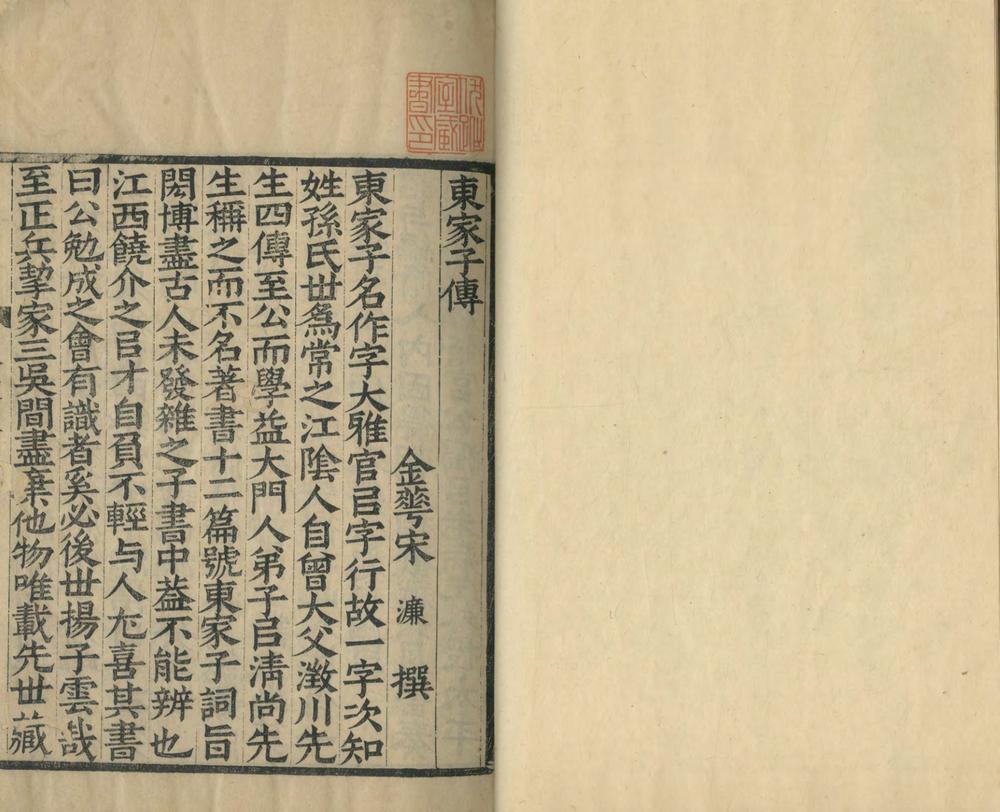 東家子傳
金蕚宋 濂 撰
東家子名作字大雅官㠯字行故一字次知
姓孫氏世爲常之江陰人自曾大父澂川先
生四傳至公而學益大門人弟子㠯清尚先
生稱之而不名著書十二篇號東家子詞旨
閎博盡古人未發雜之子書中葢不能辨也
江西饒介之㠯才自負不輕与人尤喜其書
曰公勉成之會有識者奚必後世揚子雲哉
至正兵挈家三吳間盡棄他物唯載先世藏